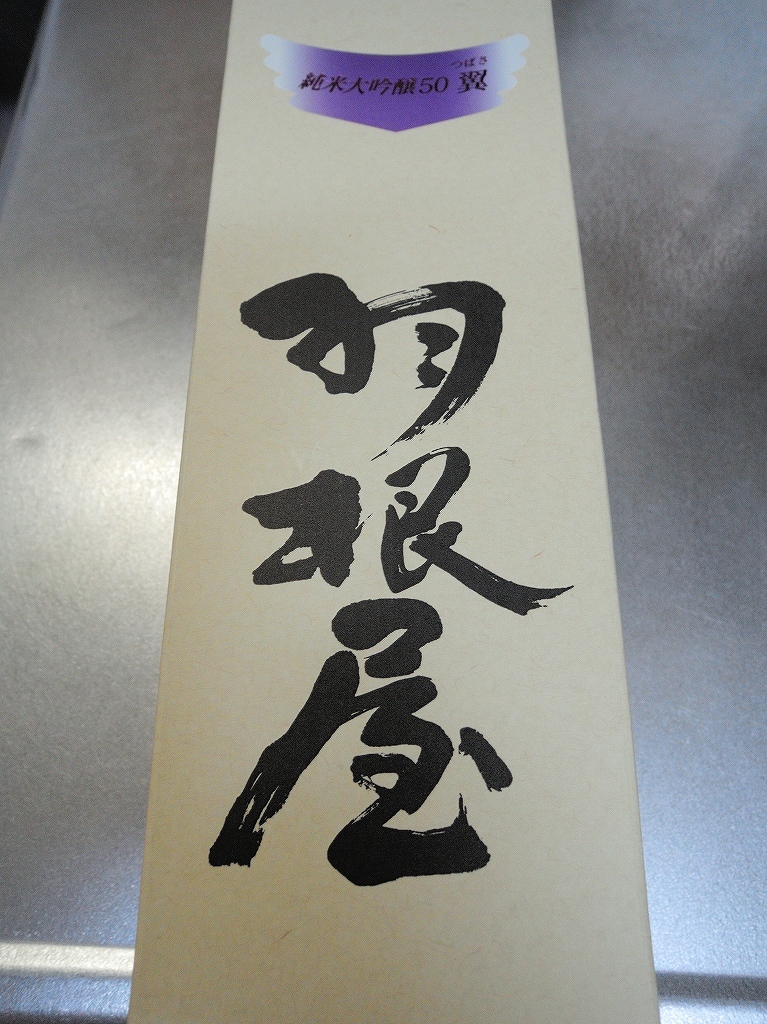 つばさ
純米大吟醸50 翼
羽根屋